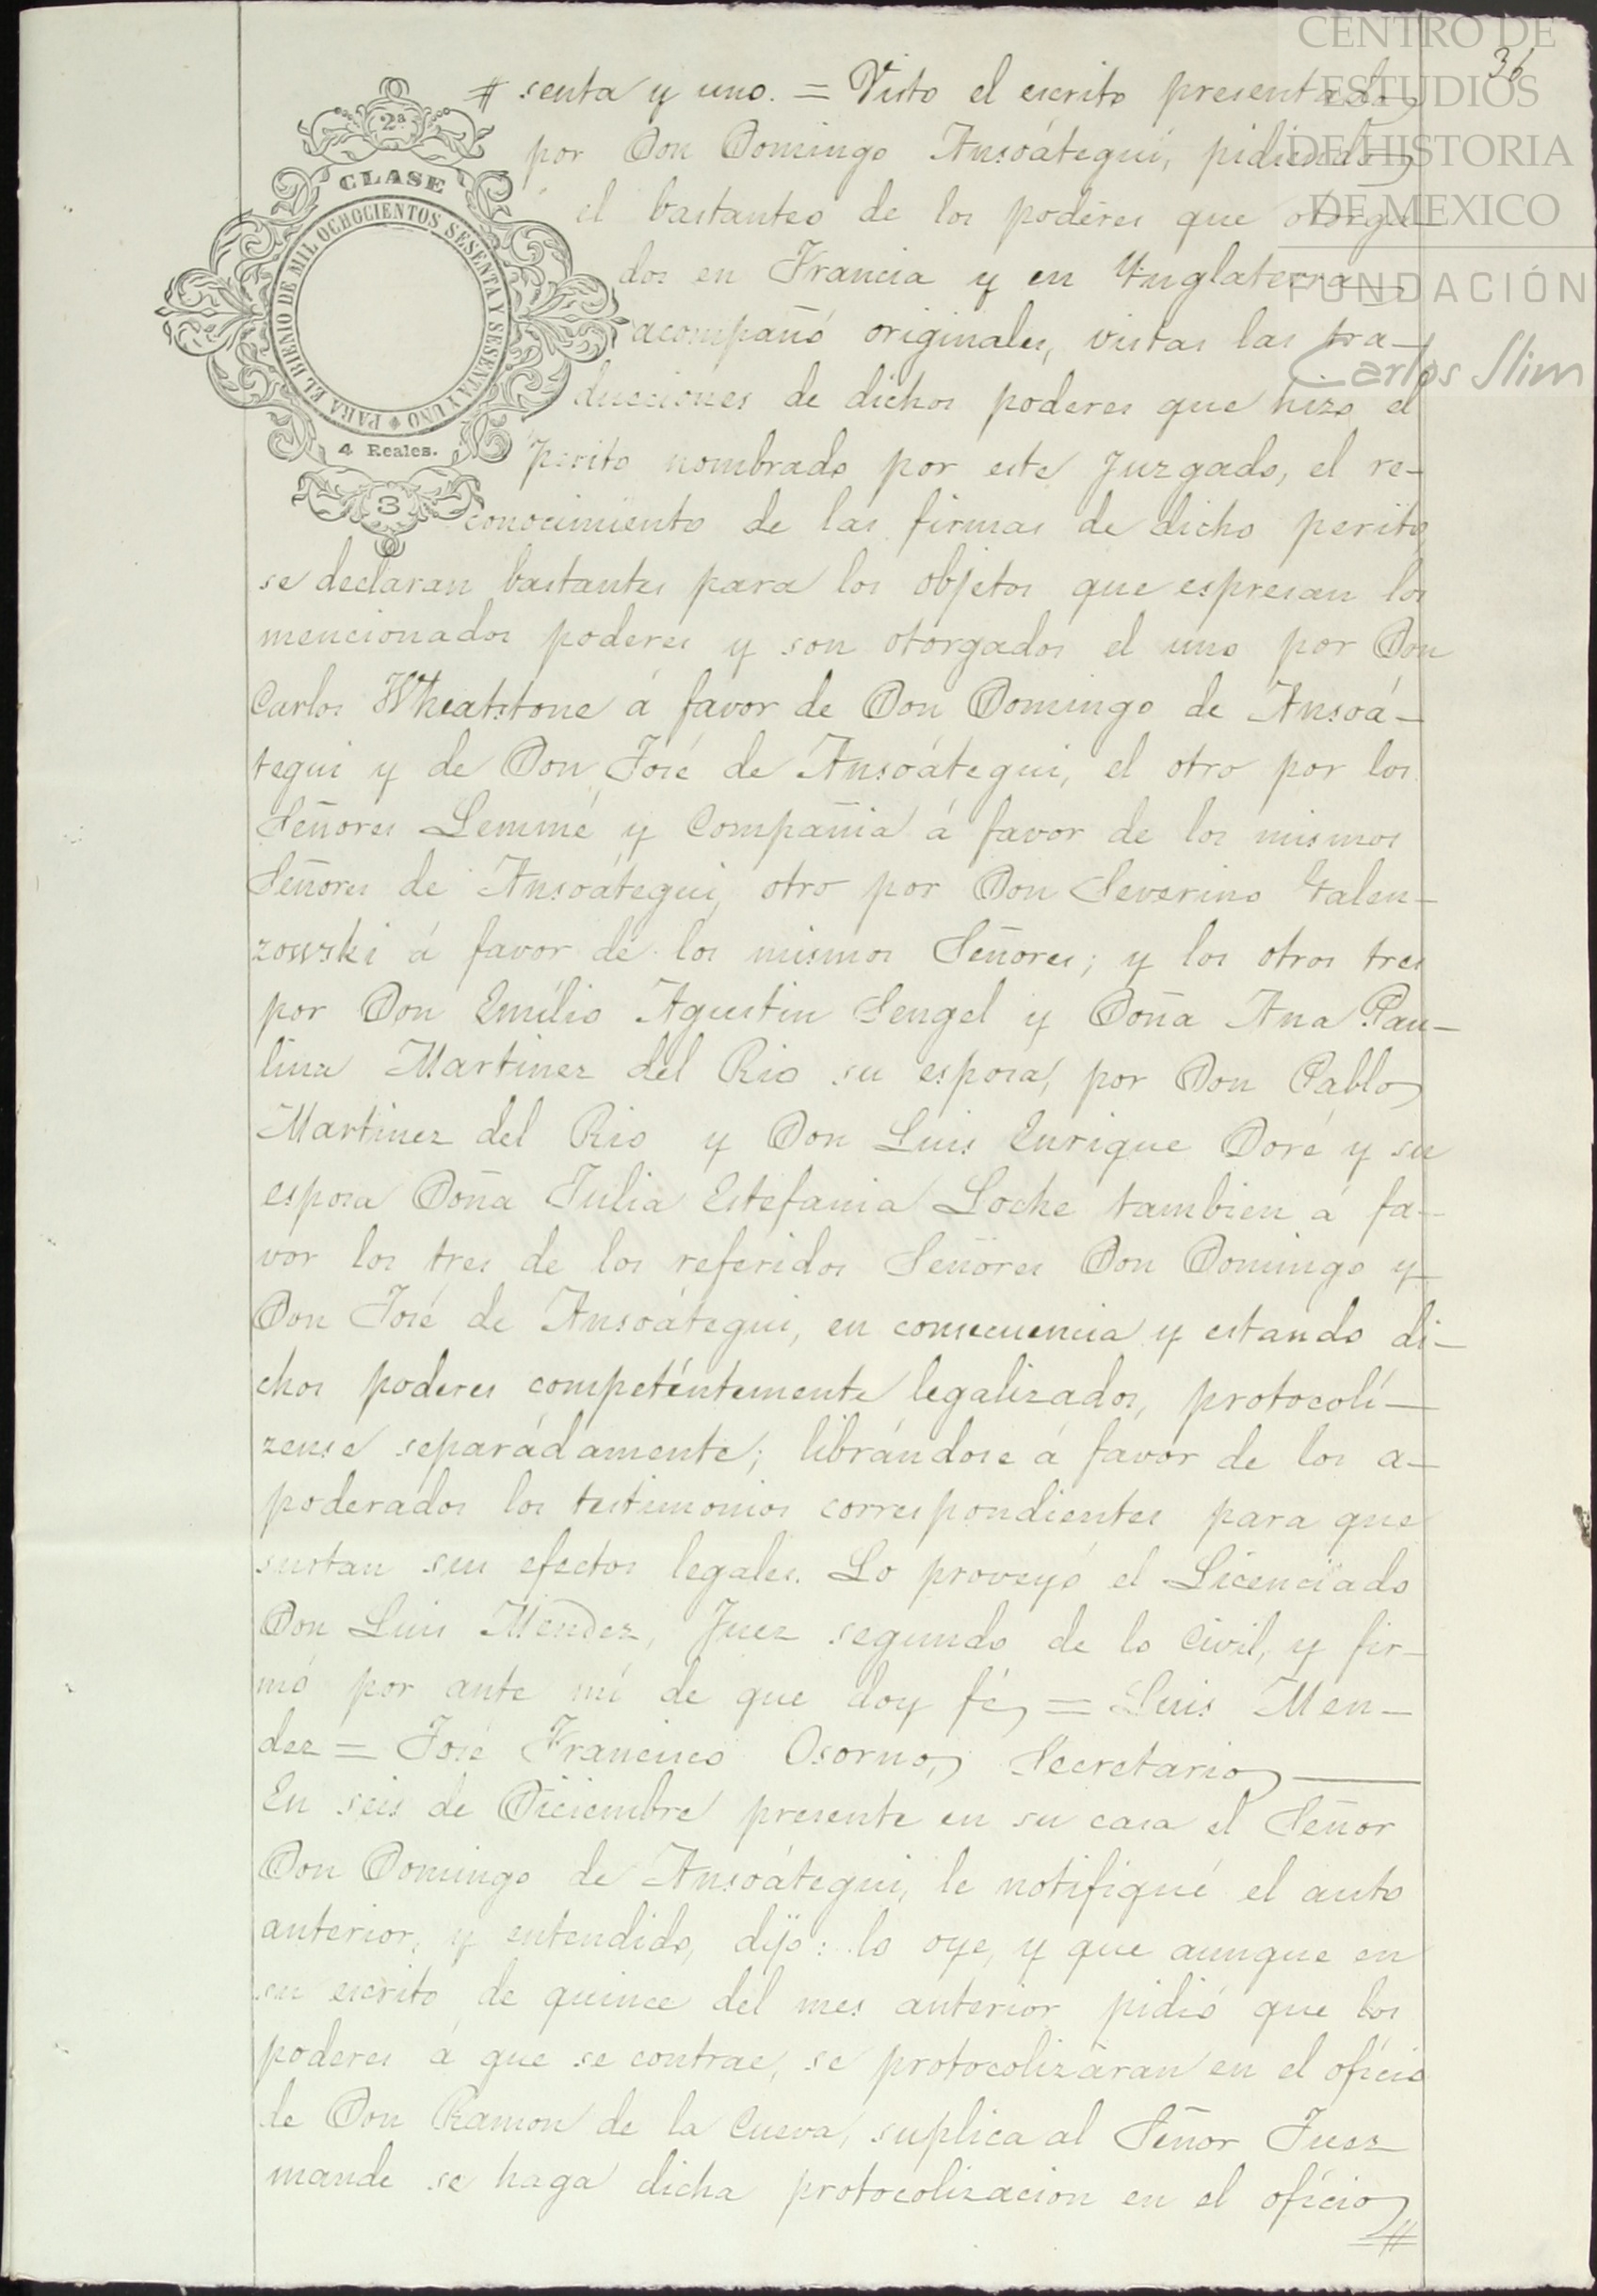 CENTRO DE
ESTUDIOS
DE HISTORIA
DE MEXICO
FUNDACIÓN
Carlos Slim
36
2ª
CLASE
PARA EL BIENIO DE MIL OCHOCIENTOS SESENTA Y SESENTA Y UNO
4 Reales.
3
senta y uno. = Visto el escrito presentado
por Don Domingo Ansoátegui, pidiendo
el bastanteo de los poderes que otorga
dos en Francia y en Ynglaterra
acompañó originales, vistas las tra-
ducciones de dichos poderes que hizo el
perito nombrado por este Juzgado, el re-
conocimiento de las firmas de dicho perito,
se declaran bastantes para los objetos que espresan los
mencionados poderes y son otorgados el uno por Don
Carlos Wheatstone á favor de Don Domingo de Ansoá-
tegui y de Don José de Ansoátegui, el otro por los
Señores Lemmé y Compañia á favor de los mismos
Señores de Ansoátegui, otro por Don Severino Galen-
zowski á favor de los mismos Señores; y los otros tres
por Don Emilio Agustin Sengel y Doña Ana Pau-
lina Martinez del Rio su esposa, por Don Pablo
Martinez del Rio y Don Luis Enrique Doré y su
esposa Doña Julia Estefania Locke tambien á fa-
vor los tres de los referidos Señores Don Domingo y
Don José de Ansoátegui, en consecuencia y estando di-
chos poderes competéntemente legalizados, protocolí-
zense separádamente; librándose á favor de los a-
poderados los testimonios correspondientes para que
surtan sus efectos legales. Lo proveyó el Licenciado
Don Luis Mendez, Juez segundo de lo Civil, y fir-
mó por ante mí de que doy fé = Luis Men-
dez = José Francisco Osorno, Secretario
En seis de Diciembre presente en su casa el Señor
Don Domingo de Ansoátegui, le notifiqué el auto
anterior, y entendido, dijo: lo oye, y que aunque en
su escrito de quince del mes anterior pidió que los
poderes á que se contrae, se protocolizáran en el oficio
de Don Ramon de la Cueva, suplica al Señor Juez
mande se haga dicha protocolizacion en el oficio